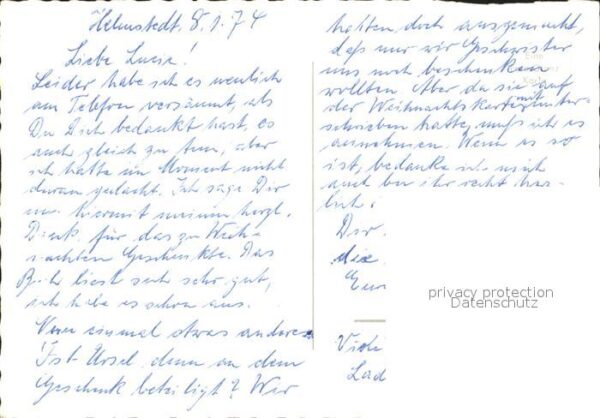 Helmstedt. 8.1.74
Liebe Lucie!
Leider habe ich es neulich
am Telefon versäumt, als
Du Dich bedankt hast, es
auch gleich zu tun, aber
ich hatte im Moment nicht
daran gedacht. Ich sage Dir
nun hiermit meinen herzl.
Dank für das zu Weih-
nachten Geschenkte. Das
Buch liest sich sehr gut,
ich habe es schon aus.
Nun einmal etwas anderes
Ist Ursel denn an dem
Geschenk beteiligt? Wir
hatten doch ausgemacht,
daß nur wir Geschwister
uns noch beschenken
wollten. Aber da sie auf
der Weihnachtskarte mit unter-
schrieben hatte, muß ich es
annehmen. Wenn es so
ist, bedanke ich mich
auch bei ihr recht herz-
lich!
Dir
die
privacy protection
Datenschutz